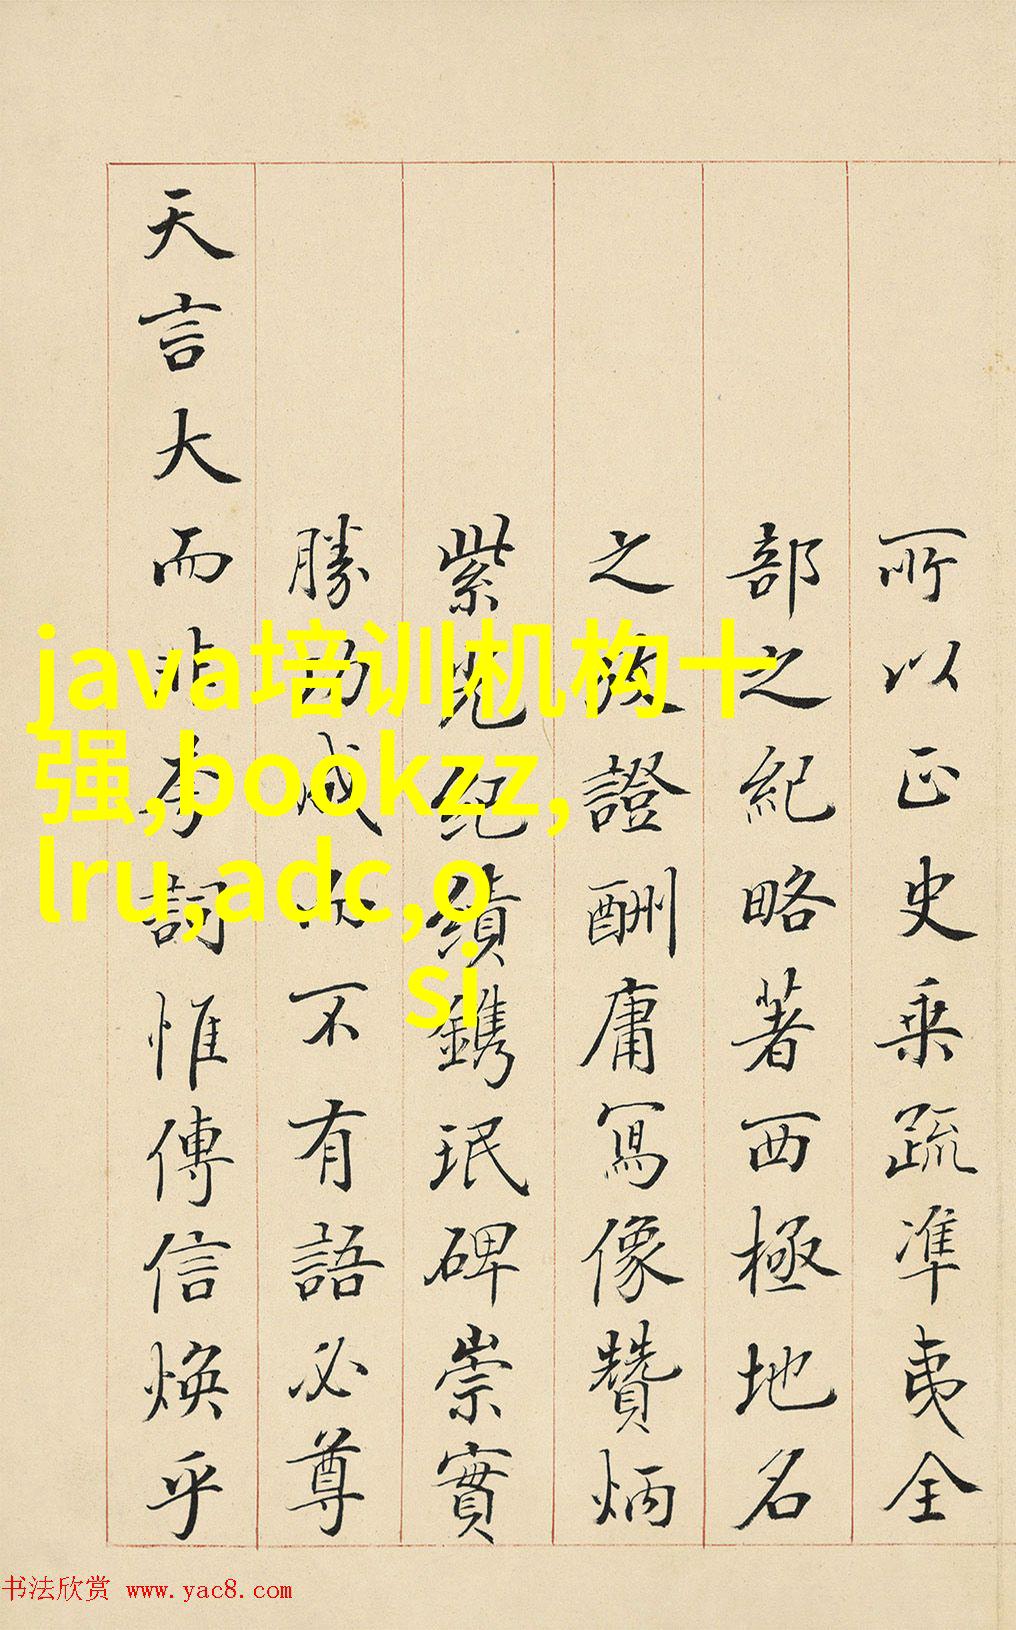 所以正史乘疏準夷全
部之紀略著西極地名
之攷證酬庸寫像贊炳
紫光紀績鐫珉碑崇實
勝的威次不有語必尊
天言大而非夸詞惟傳信煥乎
java培训机构十
强,bookzz,
lru,adc,o
si
书法欣赏 www.yac8.com